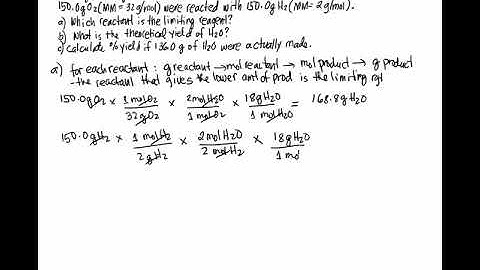 150.0g O2 (MM= 32g/mol) were reacted with 150.0g H2 (MM= 2g/mol).
a) Which reactant is the limiting reagent?
b) What is the theoretical yield of H2O?
c) calculate % yield if 136.0 g of H2O were actually made.
a) for each reactant : g reactant → mol reactant → mol product → g product
- the reactant that gives the lower amt of prod is the limiting rgt
150.0g O2 × 1 mol O2 / 32g O2 × 2 mol H2O / 1 mol O2 × 18g H2O / 1 mol H2O = 168.8g H2O
150.0g H2 × 1 mol H2 / 2g H2 × 2 mol H2O / 2 mol H2 × 18g H2O / 1 mol